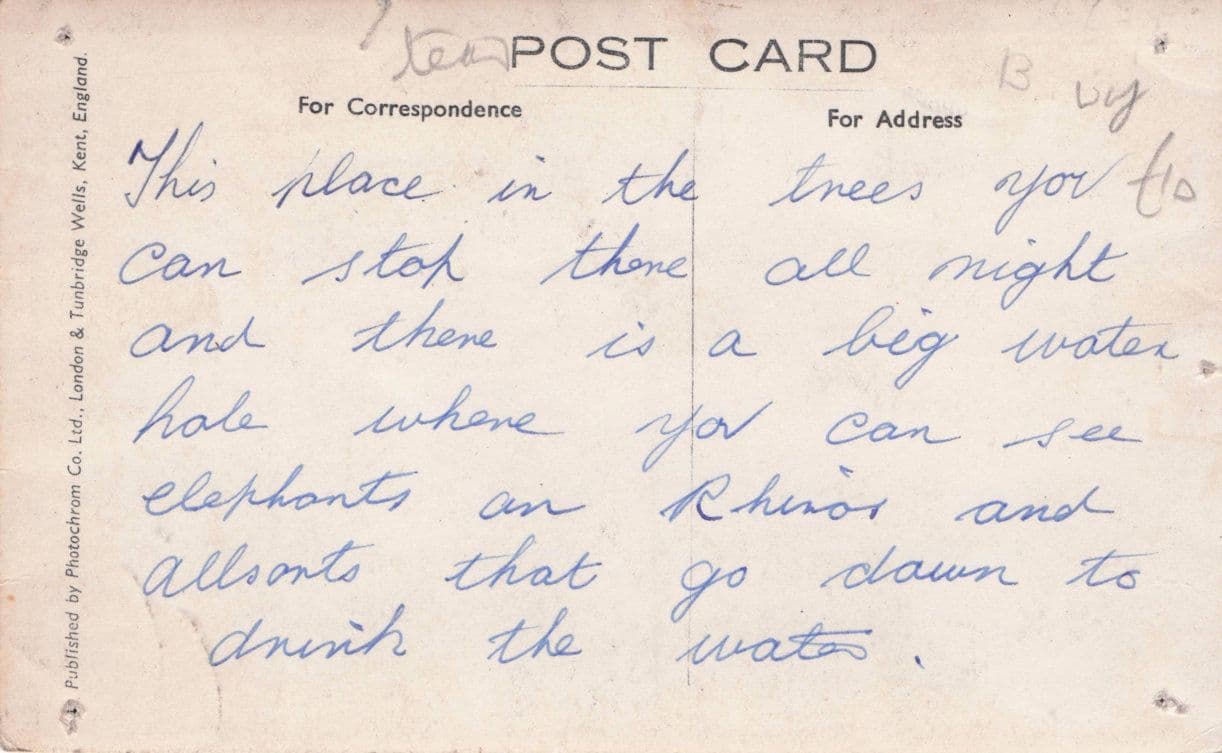 POST CARD
For Correspondence
For Address
This place in the trees you
can stop there all night
and there is a big water
hole where you can see
elephants an Rhinos and
allsorts that go down to
drink the water.
Published by Photochrom Co. Ltd., London & Tunbridge Wells, Kent, England.